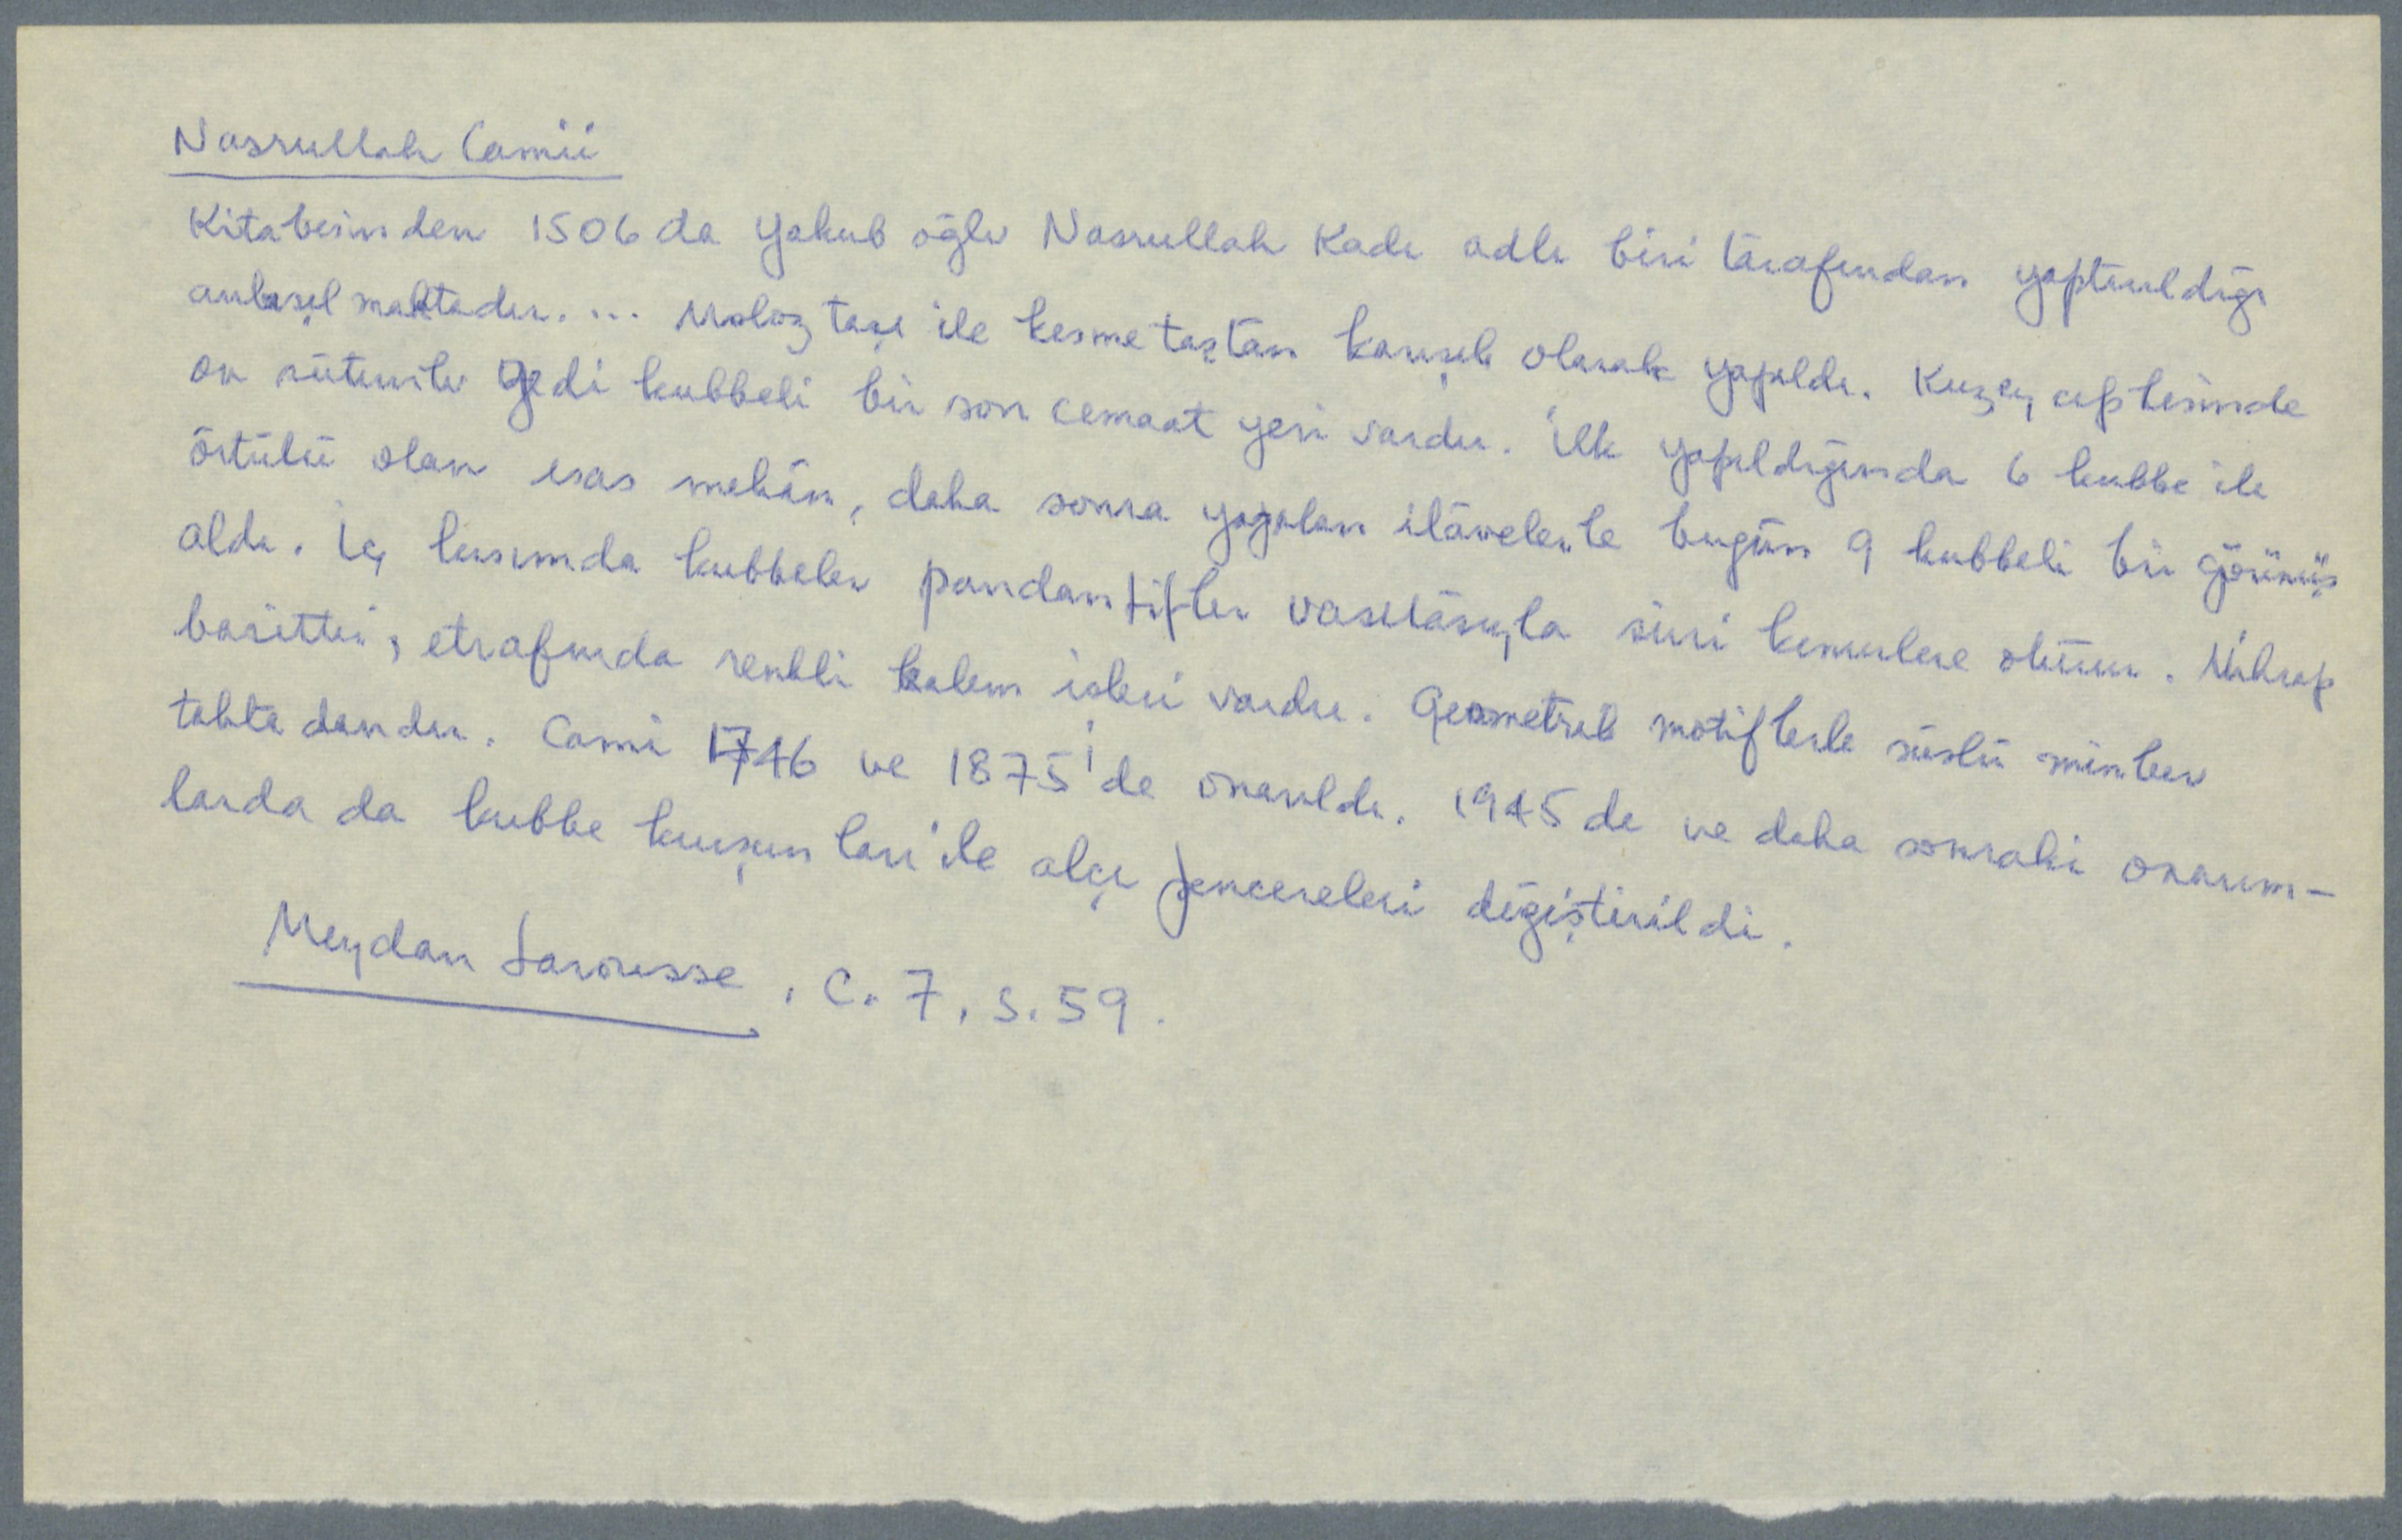 Nasrullah Camii
Kitabesinden 1506 da Yakub oğlu Nasrullah Kadı adlı biri tarafından yaptırıldığı
anlaşılmaktadır. ... Moloz taşı ile kesme taştan karışık olarak yapıldı. Kuzey cephesinde
on sütunlu yedi kubbeli bir son cemaat yeri vardır. İlk yapıldığında 6 kubbe ile
örtülü olan esas mekân, daha sonra yapılan ilâvelerle bugün 9 kubbeli bir görünüş
aldı. İç kısımda kubbeler pandantifler vasıtâsıyla sivri kemerlere oturur. Mihrap
basittir, etrafında renkli kalem işleri vardır. Geometrik motiflerle süslü minber
tahtadandır. Cami 1746 ve 1875'de onarıldı. 1945 de ve daha sonraki onarım-
larda da kubbe kurşunları ile alçı pencereleri değiştirildi.
Meydan Larousse, C. 7, s. 59.